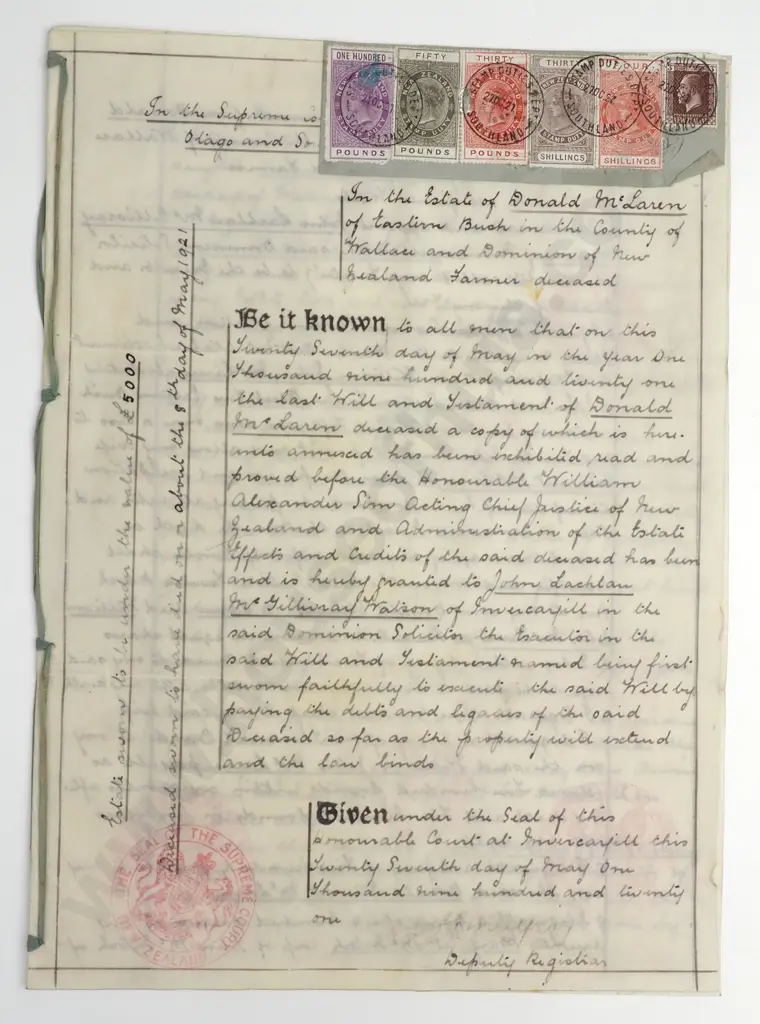 ONE HUNDRED
POUNDS
FIFTY
NEW ZEALAND
STAMP DUTY
POUNDS
THIRTY
POUNDS
STAMP DUTIES
27 DC 21
SOUTHLAND
THIRTY
STAMP DUTY
SHILLINGS
FOUR
SHILLINGS
STAMP DUTIES
27 DC 21
SOUTHLAND
In the Supreme Co
Otago and So
In the Estate of Donald McLaren
of Eastern Bush in the County of
Wallace and Dominion of New
Zealand Farmer deceased
Be it known to all men that on this
Twenty Seventh day of May in the year One
Thousand nine hundred and twenty one
the last Will and Testament of Donald
McLaren deceased a copy of which is here-
unto annexed has been exhibited read and
proved before the Honourable William
Alexander Sim Acting Chief Justice of New
Zealand and Administration of the Estate
Effects and Credits of the said deceased has been
and is hereby granted to John Lachlan
McGillivray Watson of Invercargill in the
said Dominion Solicitor the Executor in the
said Will and Testament named being first
sworn faithfully to execute the said Will by
paying the debts and legacies of the said
Deceased so far as the property will extend
and the law binds
Given under the Seal of this
honourable Court at Invercargill this
Twenty Seventh day of May One
Thousand nine hundred and twenty
one
Deputy Registrar
Estate sworn to be under the value of £5000
Deceased sworn to have died on or about the 8th day of May 1921
THE SEAL OF THE SUPREME COURT
NEW ZEALAND